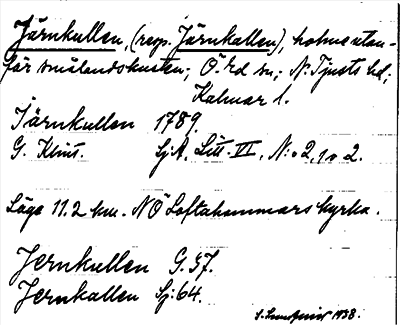 Järnkullen, (resp. Järnkallen), holme utan-
för smålandskusten; Ö. Ed sn; N. Tjusts hd;
Kalmar l.
Järnkullen 1789.
G. Klint. Sj.A. Litt. VI, N:o 2, 1 o 2.
Läge 11.2 km. NÖ Loftahammars kyrka.
Jernkullen G. 37.
Jernkallen Sj. 64.
1938.